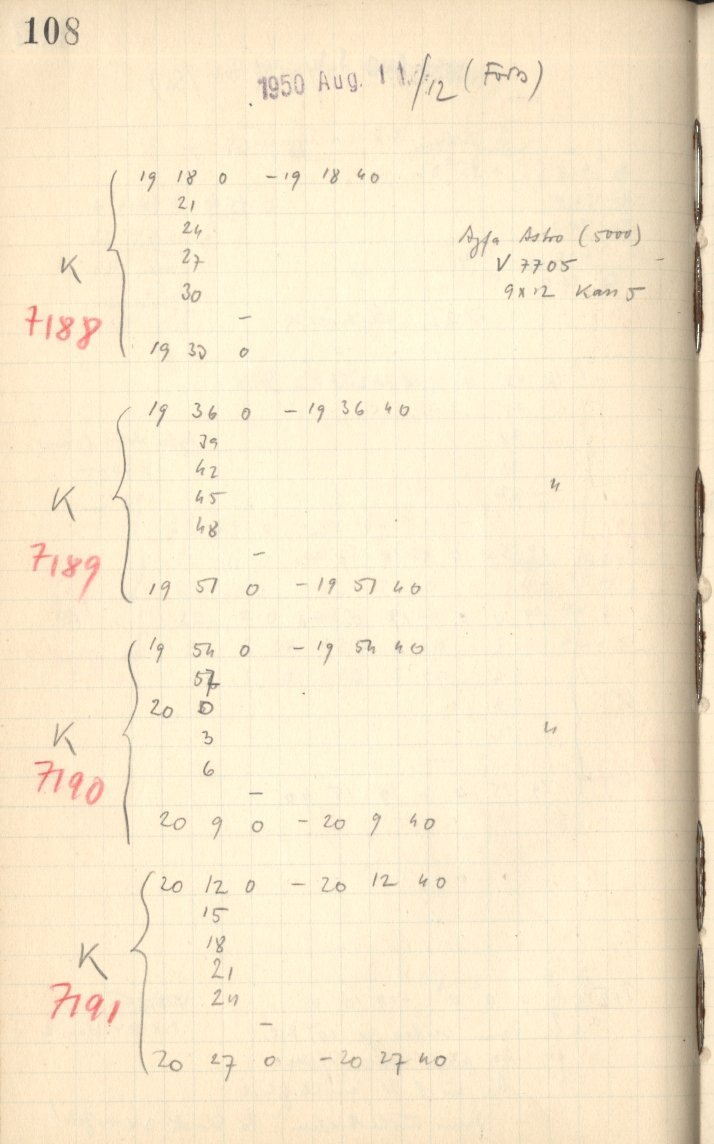 108
1950 Aug. 11./12 (Forts)
19 18 0 - 19 18 40
21
24
27
30
-
19 33 0
K
7188
Agfa Astro (5000)
V 7705
9x12 Kass 5
19 36 0 - 19 36 40
39
42
45
48
-
19 51 0 - 19 51 40
K
7189
"
19 54 0 - 19 54 40
57
20 0
3
6
-
20 9 0 - 20 9 40
K
7190
"
20 12 0 - 20 12 40
15
18
21
24
-
20 27 0 - 20 27 40
K
7191